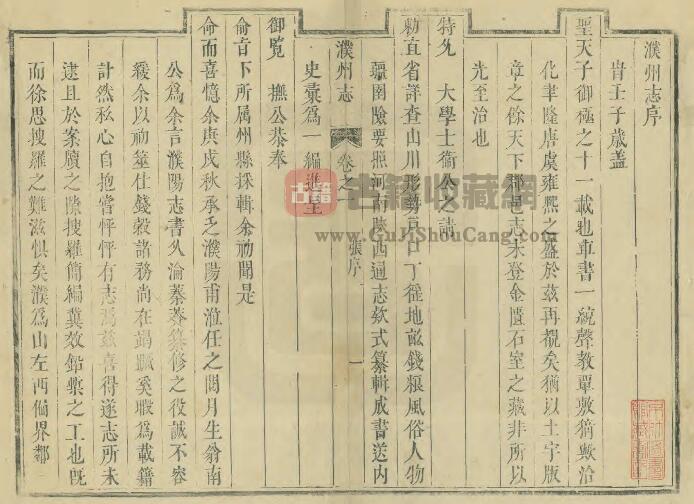 濮州志序
旹壬子歲蓋
聖天子御極之十一載也車書一統聲教覃敷猗歟洽
化聿隆唐虞雍熙之盛於茲再覩矣猶以土宇版
章之餘天下郡邑志未登金匱石室之藏非所以
光至治也
特允 大學士衞公之請
勅直省詳查山川形勢戶口丁徭地畝錢糧風俗人物
疆圉險要照河南陝西通志欵式纂輯成書送內
濮州志 卷之一 張序 一
史彙為一編進呈
御覧 撫公恭奉
命旨下所属州縣採輯余初聞是
命而喜憶余庚戌秋承乏濮陽甫涖任之閱月生翁南
公為余言濮陽志書久淪蓁莽纂修之役誠不容
緩余以初筮仕錢穀諸務尚在蹋蹶奚暇為載籍
計然私心自抱嘗怦怦有志焉茲喜得遂志所未
逮且於案牘之隙搜羅簡編冀效鉛槧之工也旣
而徐思搜羅之難滋懼矣濮為山左西偏界鄰
古籍 古籍收藏网
www.GuJiShouCang.com